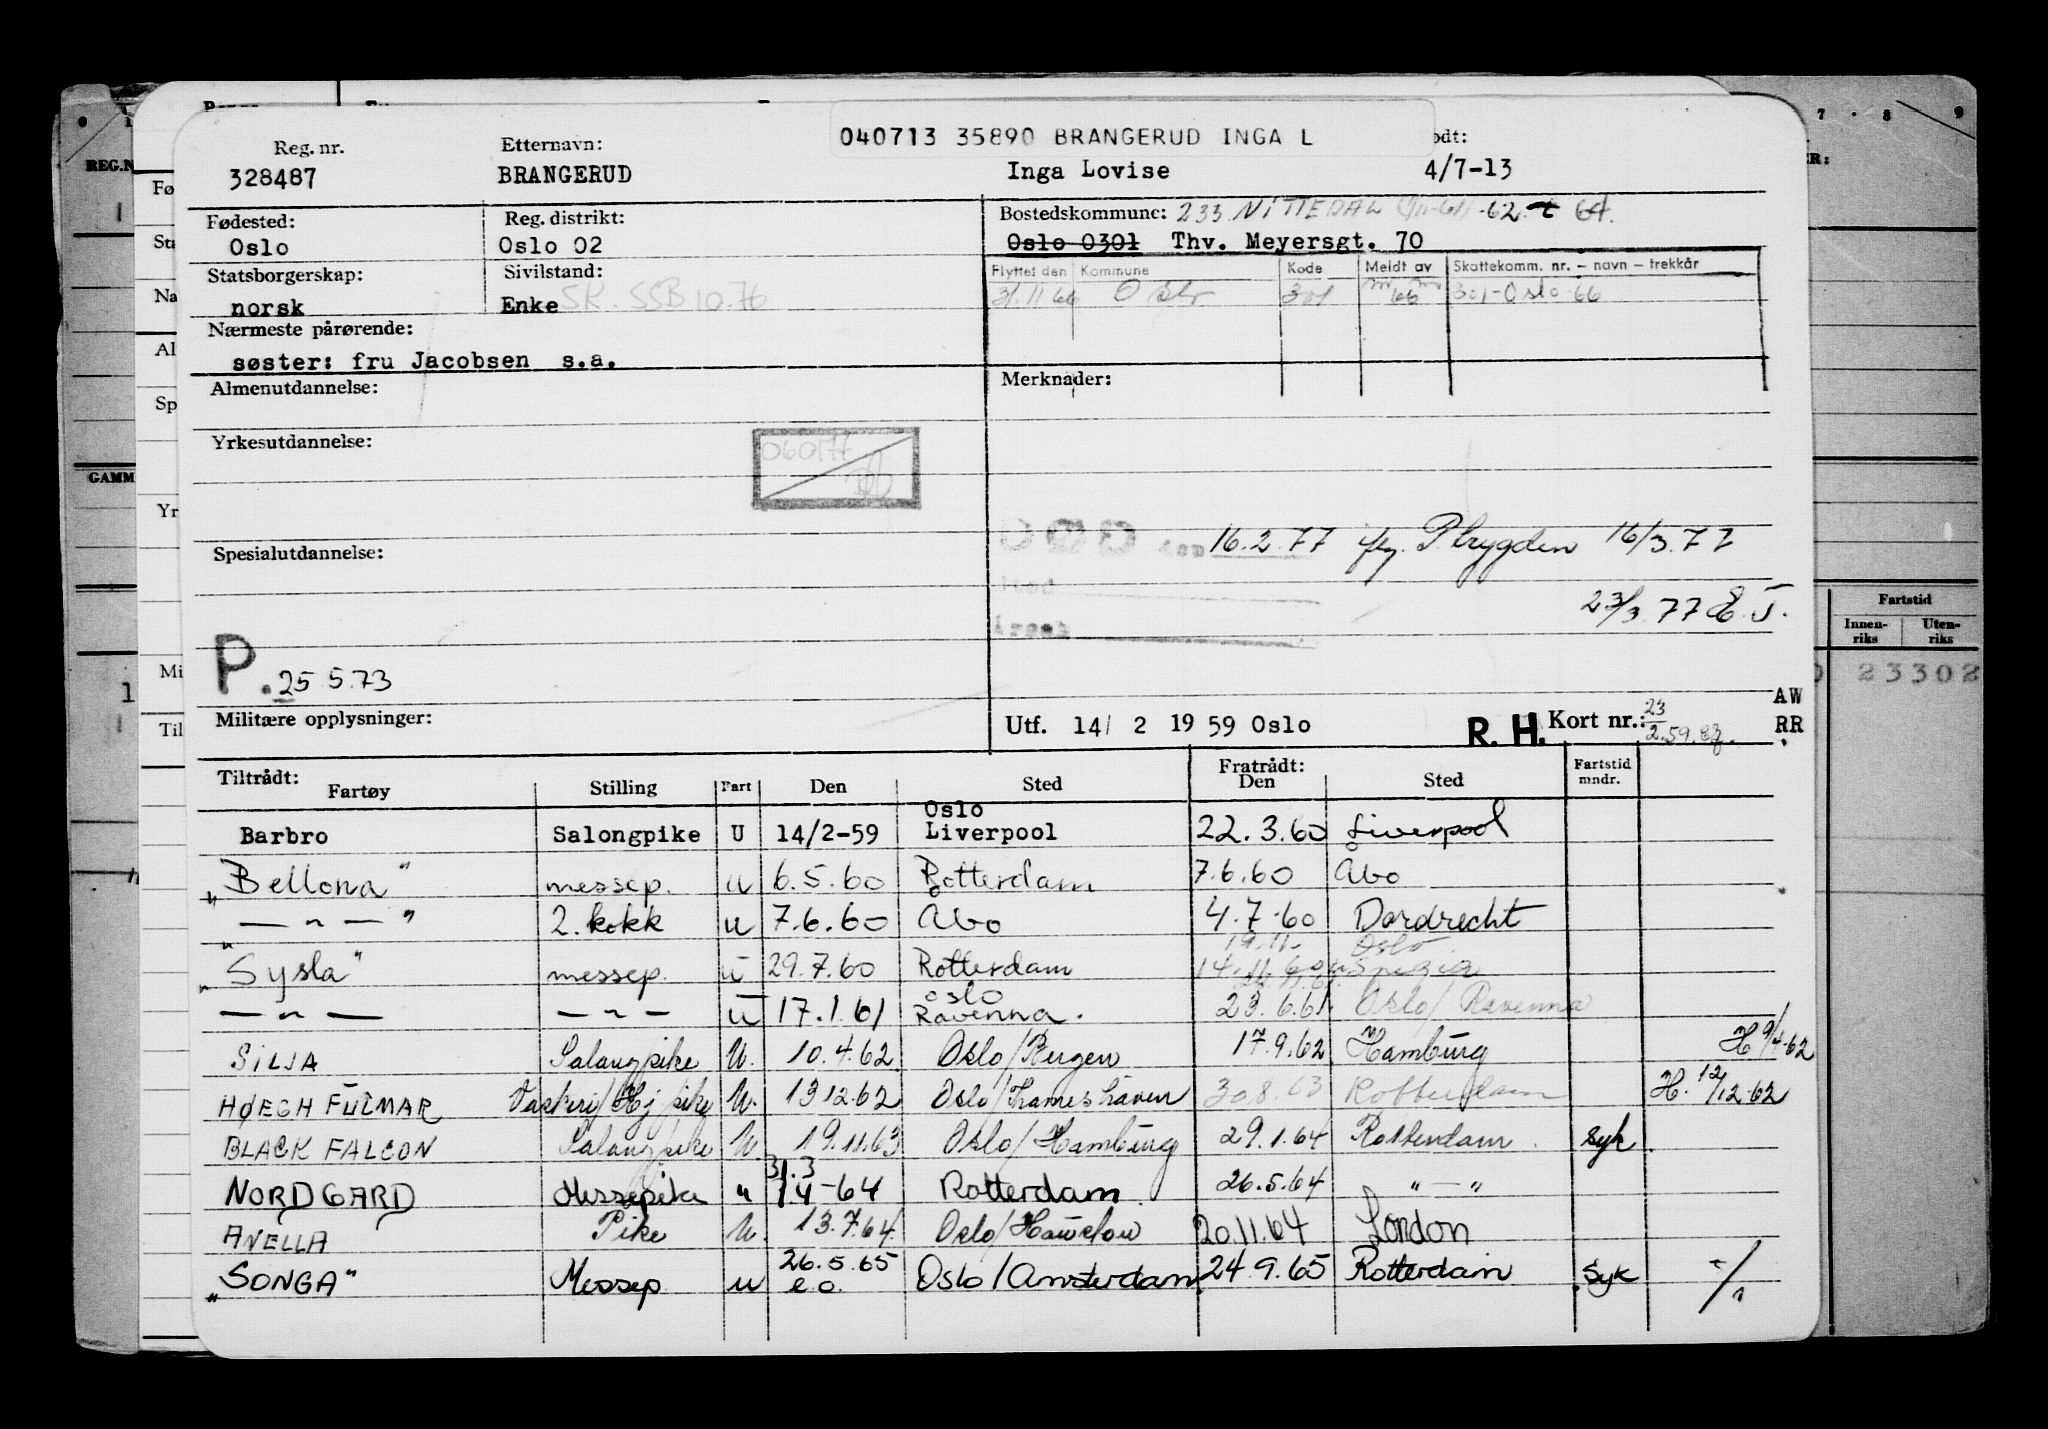 040713 35890 BRANGERUD INGA L
Reg. nr. Etternavn:ødt:
328487 BRANGERUD Inga Lovise 4/7-13
Fødested: Reg. distrikt: Bostedskommune: 233 NITTEDAL 62 64.
Oslo Oslo 02 Oslo 0301 Thv. Meyersgt. 70
Statsborgerskap: Sivilstand: Flyttet den Kommune Kode Meldt av Skattekomm. nr. – navn – trekkår
norsk Enke SK. SSB 10.76 31.11 66 Oslo 301 66 301-Oslo 66
Nærmeste pårørende:
søster: fru Jacobsen s.a.
Almenutdannelse: Merknader:
Yrkesutdannelse: 060177
16.2.77 Pbrygden 16/3.77
Spesialutdannelse:
23/3.77
P. 25 5.73
Militære opplysninger: Utf. 14/ 2 1959 Oslo R. H. Kort nr.: 23/2.59. AW RR
Tiltrådt: Fratrådt:
Fartøy Stilling Fart Den Sted Den Sted Fartstid mndr.
Barbro Salongpike U 14/2-59 Oslo Liverpool 22.3.60 Liverpool
"Bellona" messep. u 6.5.60 Rotterdam 7.6.60 Åbo
— " — " 2. kokk u 7.6.60 Åbo 4.7.60 Dordrecht
19.11. Oslo
"Sysla" messep. u 29.7.60 Rotterdam 14.11.60 Spezia
— " — — " — u 17.1.61 Oslo Ravenna. 23.6.61. Oslo/Ravenna
SILJA Salongpike U. 10.4.62 Oslo/Bergen 17.9.62 Hamburg H 9/4-62
HØEGH FULMAR Vaskeri/Hj pike U. 13 12.62 Oslo/Thameshaven 30.8.63 Rotterdam H. 12/12-62
BLACK FALCON Salongpike U. 19.11.63 Oslo/Hamburg 29.1.64 Rotterdam. syk.
31.3
NORDGARD Messepike " 1.4-64 Rotterdam 26.5.64 " — "
ANELLA Pike U. 13.7.64. 20.11.64 London
"SONGA" Messep u 26.5.65 e.o. Oslo/Amsterdam 24.9.65 Rotterdam syk
REG.N
GAMM
Fartstid
Innen-riks Uten-riks
23302